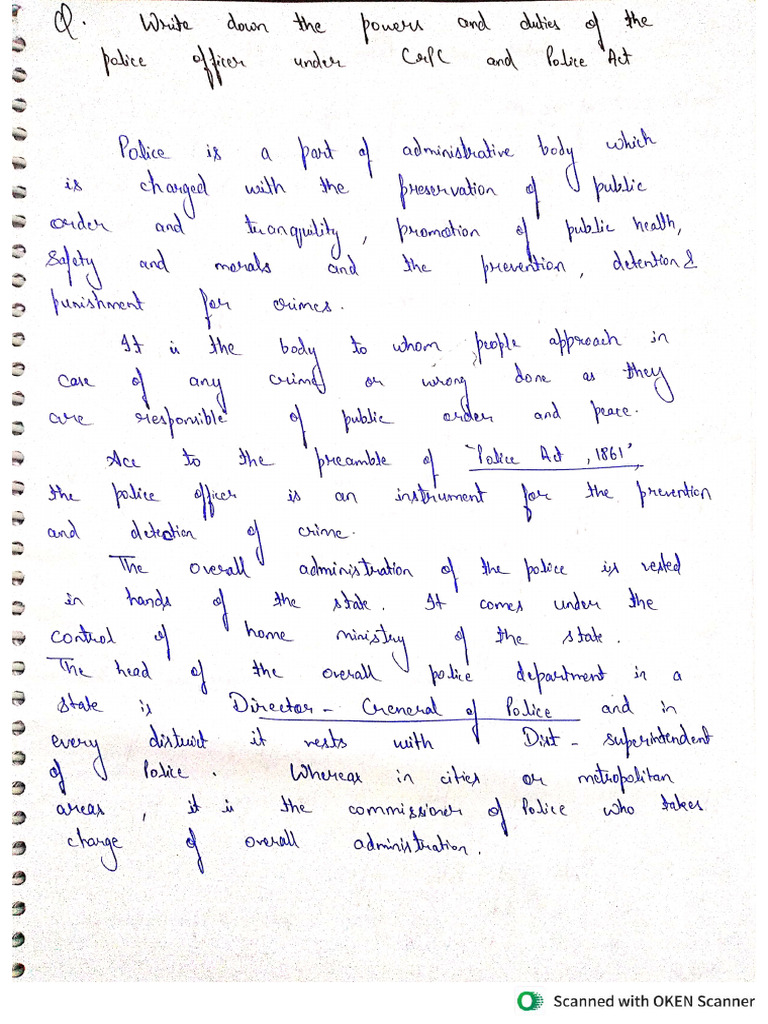 Q. Write down the powers and duties of the
police officer under CrPC and Police Act
Police is a part of administrative body which
is charged with the preservation of public
order and tranquility, promotion of public health,
safety and morals and the prevention, detention &
punishment for crimes.
It is the body to whom people approach in
case of any crime or wrong done as they
are responsible of public order and peace.
Acc to the preamble of "Police Act, 1861",
the police officer is an instrument for the prevention
and detection of crime.
The overall administration of the police is vested
in hands of the state. It comes under the
control of home ministry of the state.
The head of the overall police department in a
state is Director-General of Police and in
every district it rests with Dist-superintendent
of Police. Whereas in cities or metropolitan
areas, it is the commissioner of Police who takes
charge of overall administration.
Scanned with OKEN Scanner